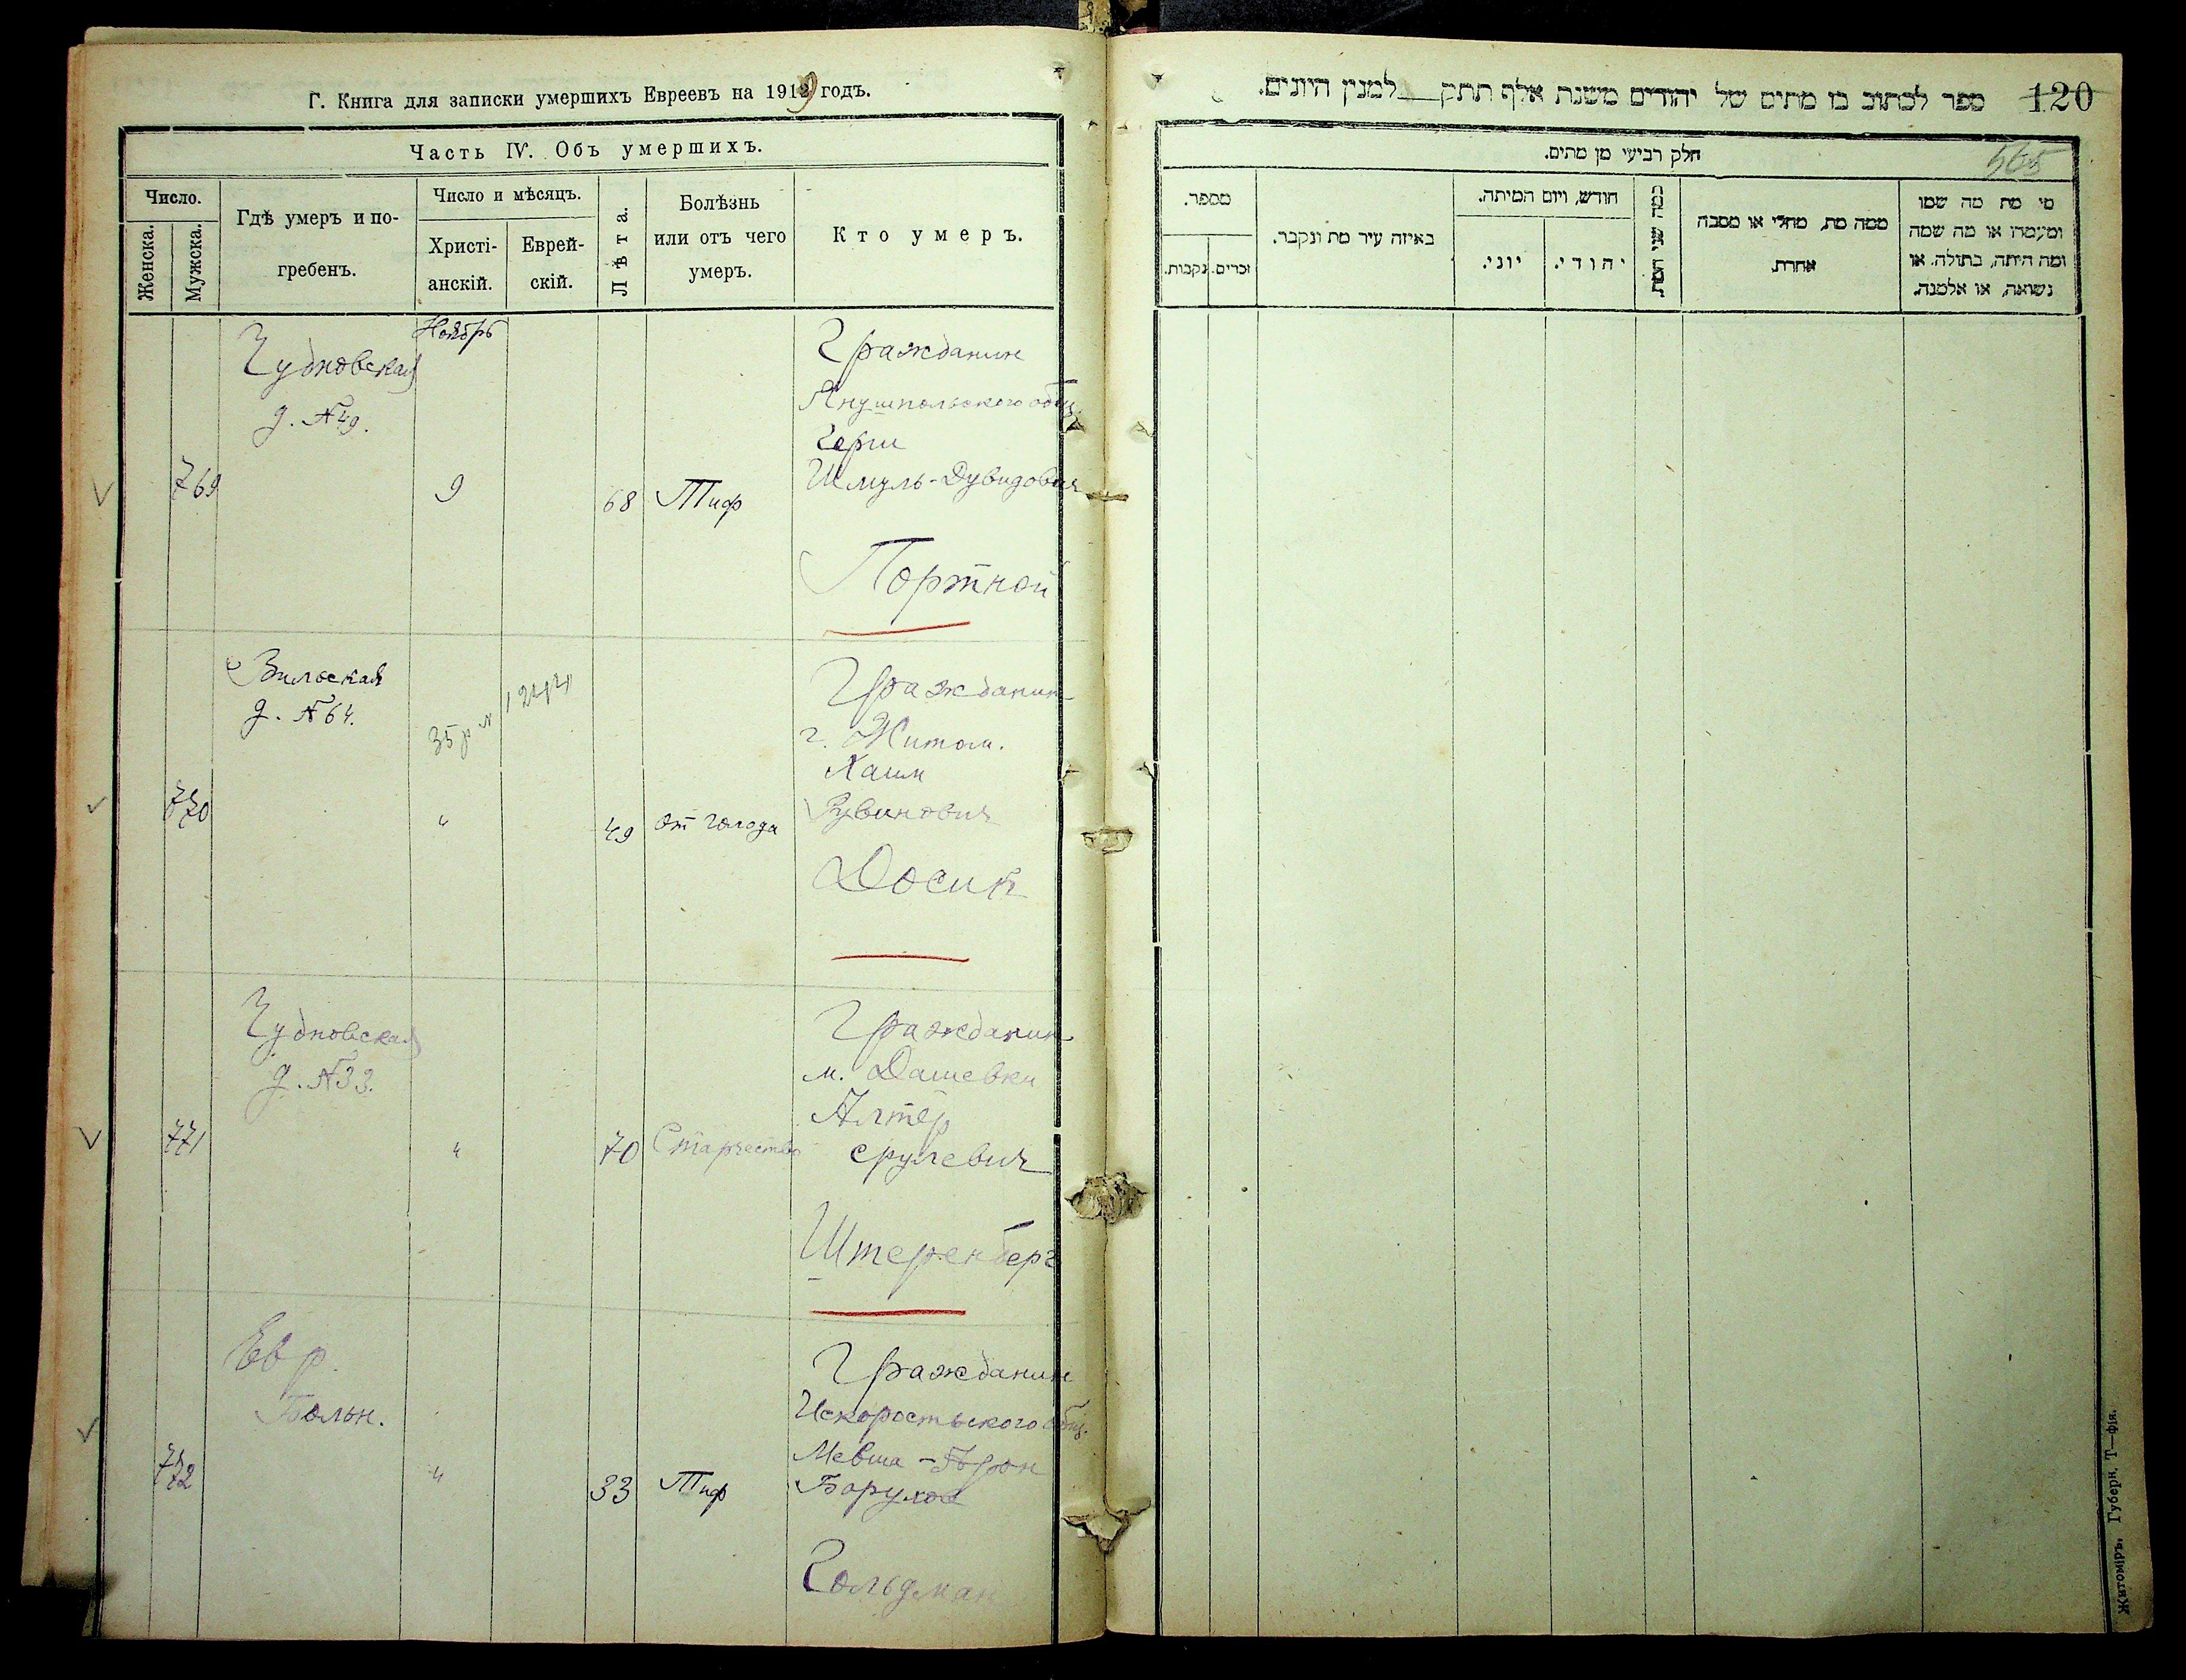 Г. Книга для записки умершихъ Евреевъ на 1919 годъ.
Часть IV. Объ умершихъ.
Число.
Женска.
Мужска.
Гдѣ умеръ и по-
гребенъ.
Число и мѣсяцъ.
Христі-
анскій.
Еврей-
скій.
Лѣта.
Болѣзнь
или отъ чего
умеръ.
Кто умеръ.
Ноябрь
769
Чудновская
д. №49.
9
68
Тиф
Гражданин
Янушпольского общ.
Герш
Шмуль-Дувидович
Портной
770
Вильская
д. №64.
35 р
"
49
от голода
Гражданин
г. Житом.
Хаим
Рувинович
Досик
771
Чудновская
д. №33.
"
70
Старчество
Гражданин
м. Дашевки
Алтер
Срулевич
Штеренберг
772
Евр.
Больн.
"
33
Тиф
Гражданин
Искоростьского общ.
Мевша-
Борухов
Гольдман
ספר לכתוב בו מתים של יהודים משנת אלף תתק למנין היונים.
120
565
חלק רביעי מן מתים.
מספר.
נקבות.
זכרים.
באיזה עיר מת ונקבר.
חודש, ויום המיתה.
יוני.
יהודי.
כמה שני המת
ממה מת, מחלי או מסבה
אחרת.
מי מת מה שמו
ומעמדו או מה שמה
ומה היתה, בתולה. או
נשואה, או אלמנה.
Житоміръ, Губерн. Т—фія.